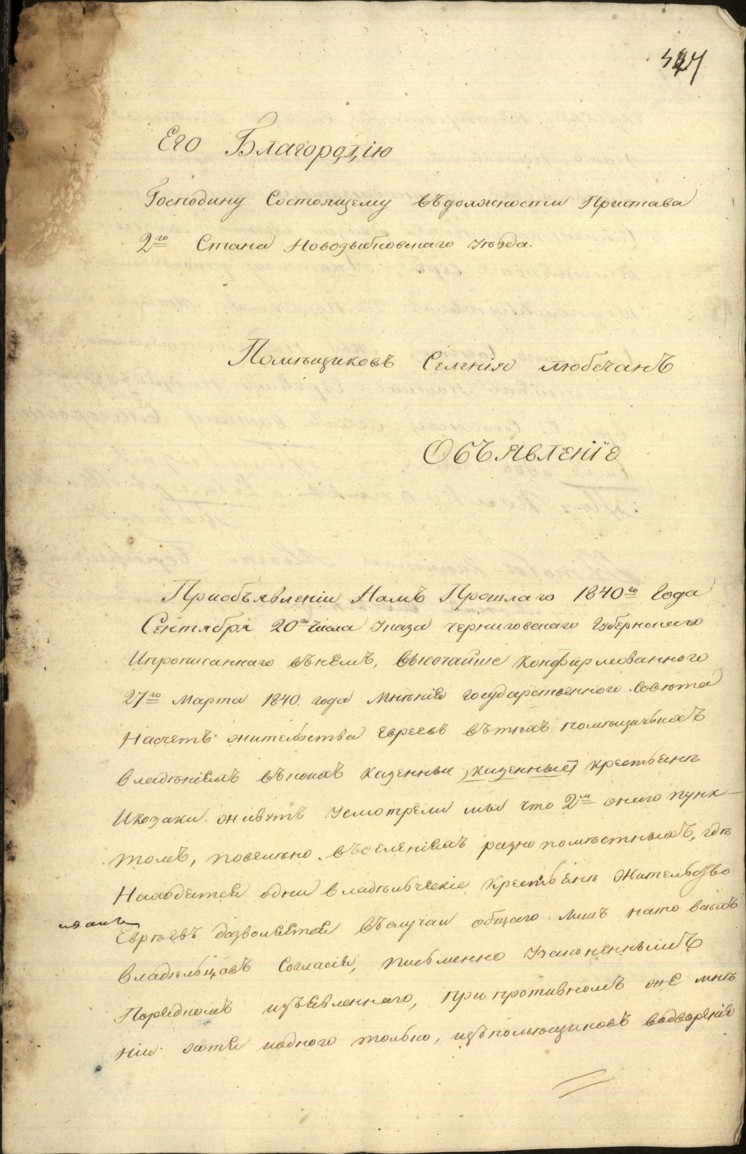 Его Благородію
Господину Состоящему въ должности Пристава
2го Стана Новозыбковскаго Уѣзда.
Помѣщиковъ Селенія Любечанъ
Объявленіе
Приобъявленіи Намъ Прошлаго 1840го Года
Сентября 20го Числа Указа Черниговскаго Губернскаго
Ипрописаннаго внемъ, высочайше конфирмованнаго
27го Марта 1840. года Мнѣнія Государственнаго Совѣта
Насчетъ жительства Евреевъ вътѣхъ помѣщичьихъ
владѣніяхъ въкоихъ казенные, казенные крестьянѣ
Иказаки живутъ усмотрели мы что 2мъ онаго пунк-
томъ, повелѣно въселеніяхъ разно помѣстныхъ, гдѣ
Находятся одни владѣльческіе крестьянѣ жительство
Евреевъ дозволяется въслучаи общаго лишь нато всѣхъ
владѣльцовъ Согласія, письменно Узаконеннымъ
Порядкомъ изъявленнаго, припротивномъ же мнѣ
ніи хотя иодного только, изъпомѣщиковъ водвореніе